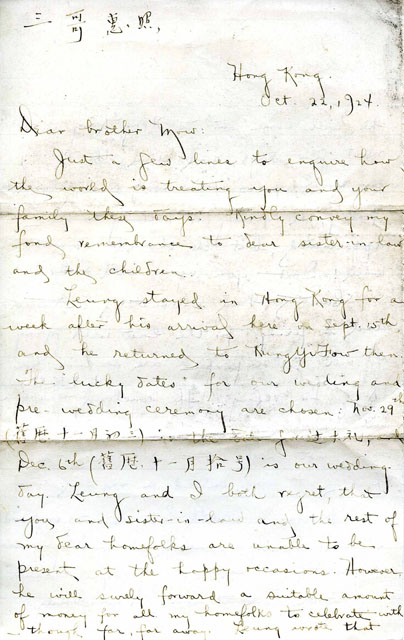 三哥惠照,
Hong Kong.
Oct. 22, 1924.
Dear brother Mow:
Just a few lines to enquire how
the world is treating you and your
family these days. Kindly convey my
fond remembrance to dear sister-in-law
and the children.
Leung stayed in Hong Kong for a
week after his arrival here on Sept. 15th
and he returned to KungYiFow then.
The lucky dates for our wedding and
pre-wedding ceremony are chosen: Nov. 29th
(舊曆十一月初三) is the
Dec. 6th (舊曆十一月拾号) is our wedding
day. Leung and I both regret, that
you and sister-in-law and the rest of
my dear homefolks are unable to be
present at the happy occasions. However
he will surely forward a suitable amount
of money for all my homefolks to celebrate with
though far, far away. Leung wrote that